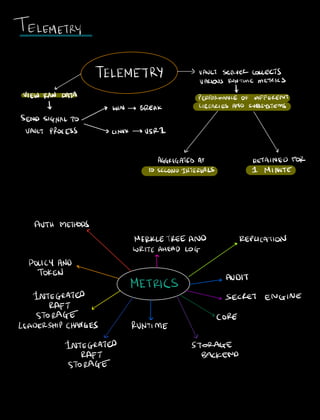 TELEMETRY
TELEMETRY
VAULT SERVER COLLECTS
VARIOUS RUNTIME METRICS
VIEW RAW DATA
PERFORMANCE OF DIFFERENT
LIBRARIES AND SUBSYSTEMS
SEND SIGNAL TO
VAULT PROCESS
WIN → BREAK
LINUX → USR1
AGGREGATED AT
10 SECOND INTERVALS
RETAINED FOR
1 MINUTE
AUTH METHODS
MERKLE TREE AND
WRITE AHEAD LOG
REPLICATION
POLICY AND
TOKEN
METRICS
AUDIT
SECRET ENGINE
INTEGRATED
RAFT
STORAGE
LEADERSHIP CHANGES
CORE
RUNTIME
INTEGRATED
RAFT
STORAGE
STORAGE
BACKEND